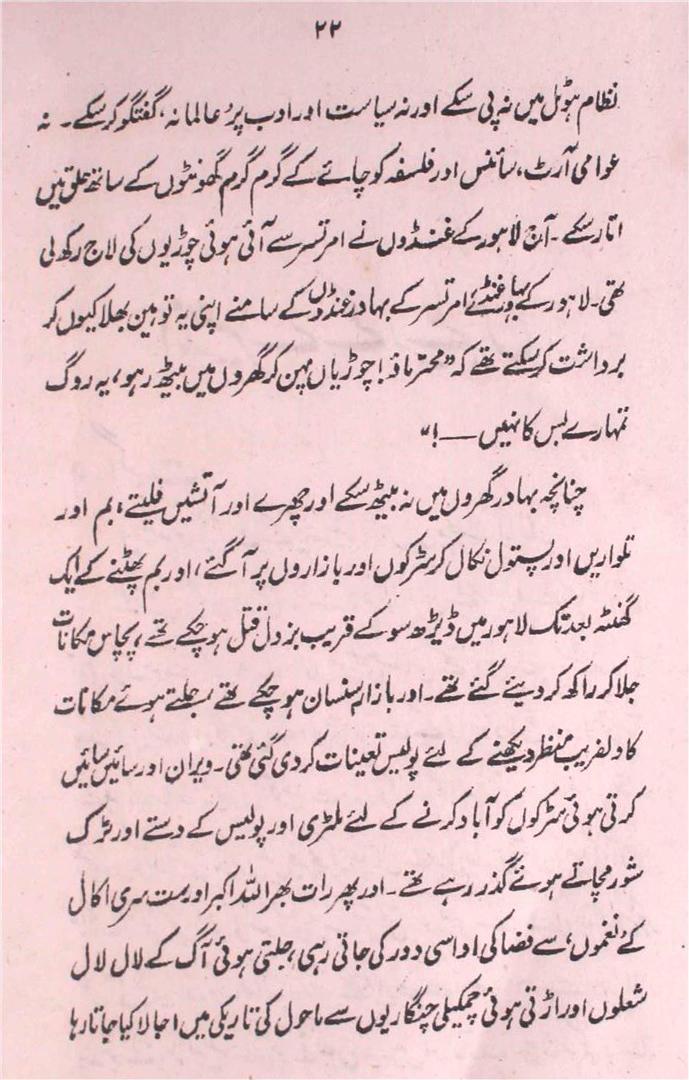 ۲۲
نظام ہوٹل میں نہ پی سکے اور نہ سیاست اور ادب پر عالمانہ، گفتگو کر سکے۔ نہ
عوامی آرٹ، سائنس اور فلسفہ کو چائے کے گرم گرم گھونٹوں کے ساتھ حلق میں
اتار سکے۔ آج لاہور کے غنڈوں نے امرتسر سے آئی ہوئی چوڑیوں کی لاج رکھ لی
تھی۔ لاہور کے بہادر غنڈے، امرتسر کے بہادر غنڈوں کے سامنے اپنی یہ توہین بھلا کیوں کر
برداشت کر سکتے تھے کہ ”محترماؤ! چوڑیاں پہن کر گھروں میں بیٹھ رہو، یہ روگ
تمہارے بس کا نہیں ——!“
چنانچہ بہادر گھروں میں نہ بیٹھ سکے اور چھرے اور آتشیں فلیتے، بم اور
تلواریں اور پستول نکال کر سڑکوں اور بازاروں پر آ گئے، اور بم پھٹنے کے ایک
گھنٹہ بعد تک لاہور میں ڈیڑھ سو کے قریب بزدل قتل ہو چکے تھے، پچاس مکانات
جلا کر راکھ کر دیئے گئے تھے۔ اور بازار سنسان ہو چکے تھے، جلتے ہوئے مکانات
کا دلفریب منظر دیکھنے کے لئے پولیس تعینات کر دی گئی تھی۔ ویران اور سائیں سائیں
کرتی ہوئی سڑکوں کو آباد کرنے کے لئے ملٹری اور پولیس کے دستے اور ٹرک
شور مچاتے ہوئے گذر رہے تھے۔ اور پھر رات بھر اللہ اکبر اور ست سری اکال
کے نغموں، سے فضا کی اداسی دور کی جاتی رہی، جلتی ہوئی آگ کے لال لال
شعلوں اور اڑتی ہوئی چمکیلی چنگاریوں سے ماحول کی تاریکی میں اجالا کیا جاتا رہا